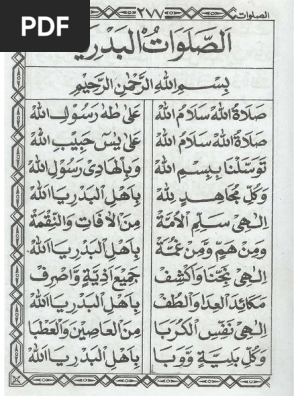 PDF
٢٧٧ الصلوات
الصَّلَوَاتُ الْبَدْرِيَّ
بِسْمِ اللهِ الرَّحْمٰنِ الرَّحِيْمِ
صَلَاةُ اللهْ سَلَامُ اللهْ عَلٰى طٰهَ رَسُوْلِ اللهْ
صَلَاةُ اللهْ سَلَامُ اللهْ عَلٰى يٰسٓ حَبِيْبِ اللهْ
تَوَسَّلْنَا بِبِسْمِ اللهْ وَبِالْهَادِى رَسُوْلِ اللهْ
وَكُلِّ مُجَاهِدٍ لِلّٰهْ بِاَهْلِ الْبَدْرِ يَا اَللهْ
اِلٰهِيْ سَلِّمِ الْاُمَّةْ مِنَ الْاٰفَاتِ وَالنِّقْمَةْ
وَمِنْ هَمٍّ وَمِنْ غُمَّةْ بِاَهْلِ الْبَدْرِ يَا اَللهْ
اِلٰهِيْ نَجِّنَا وَاكْشِفْ جَمِيْعَ اَذِيَّةٍ وَاصْرِفْ
مَكَائِدَ الْعِدَا وَالْطُفْ بِاَهْلِ الْبَدْرِ يَا اَللهْ
اِلٰهِيْ نَفِّسِ الْكُرَبَا مِنَ الْعَاصِيْنَ وَالْعَطْبَا
وَكُلِّ بَلِيَّةٍ وَوَبَا بِاَهْلِ الْبَدْرِ يَا اَللهْ